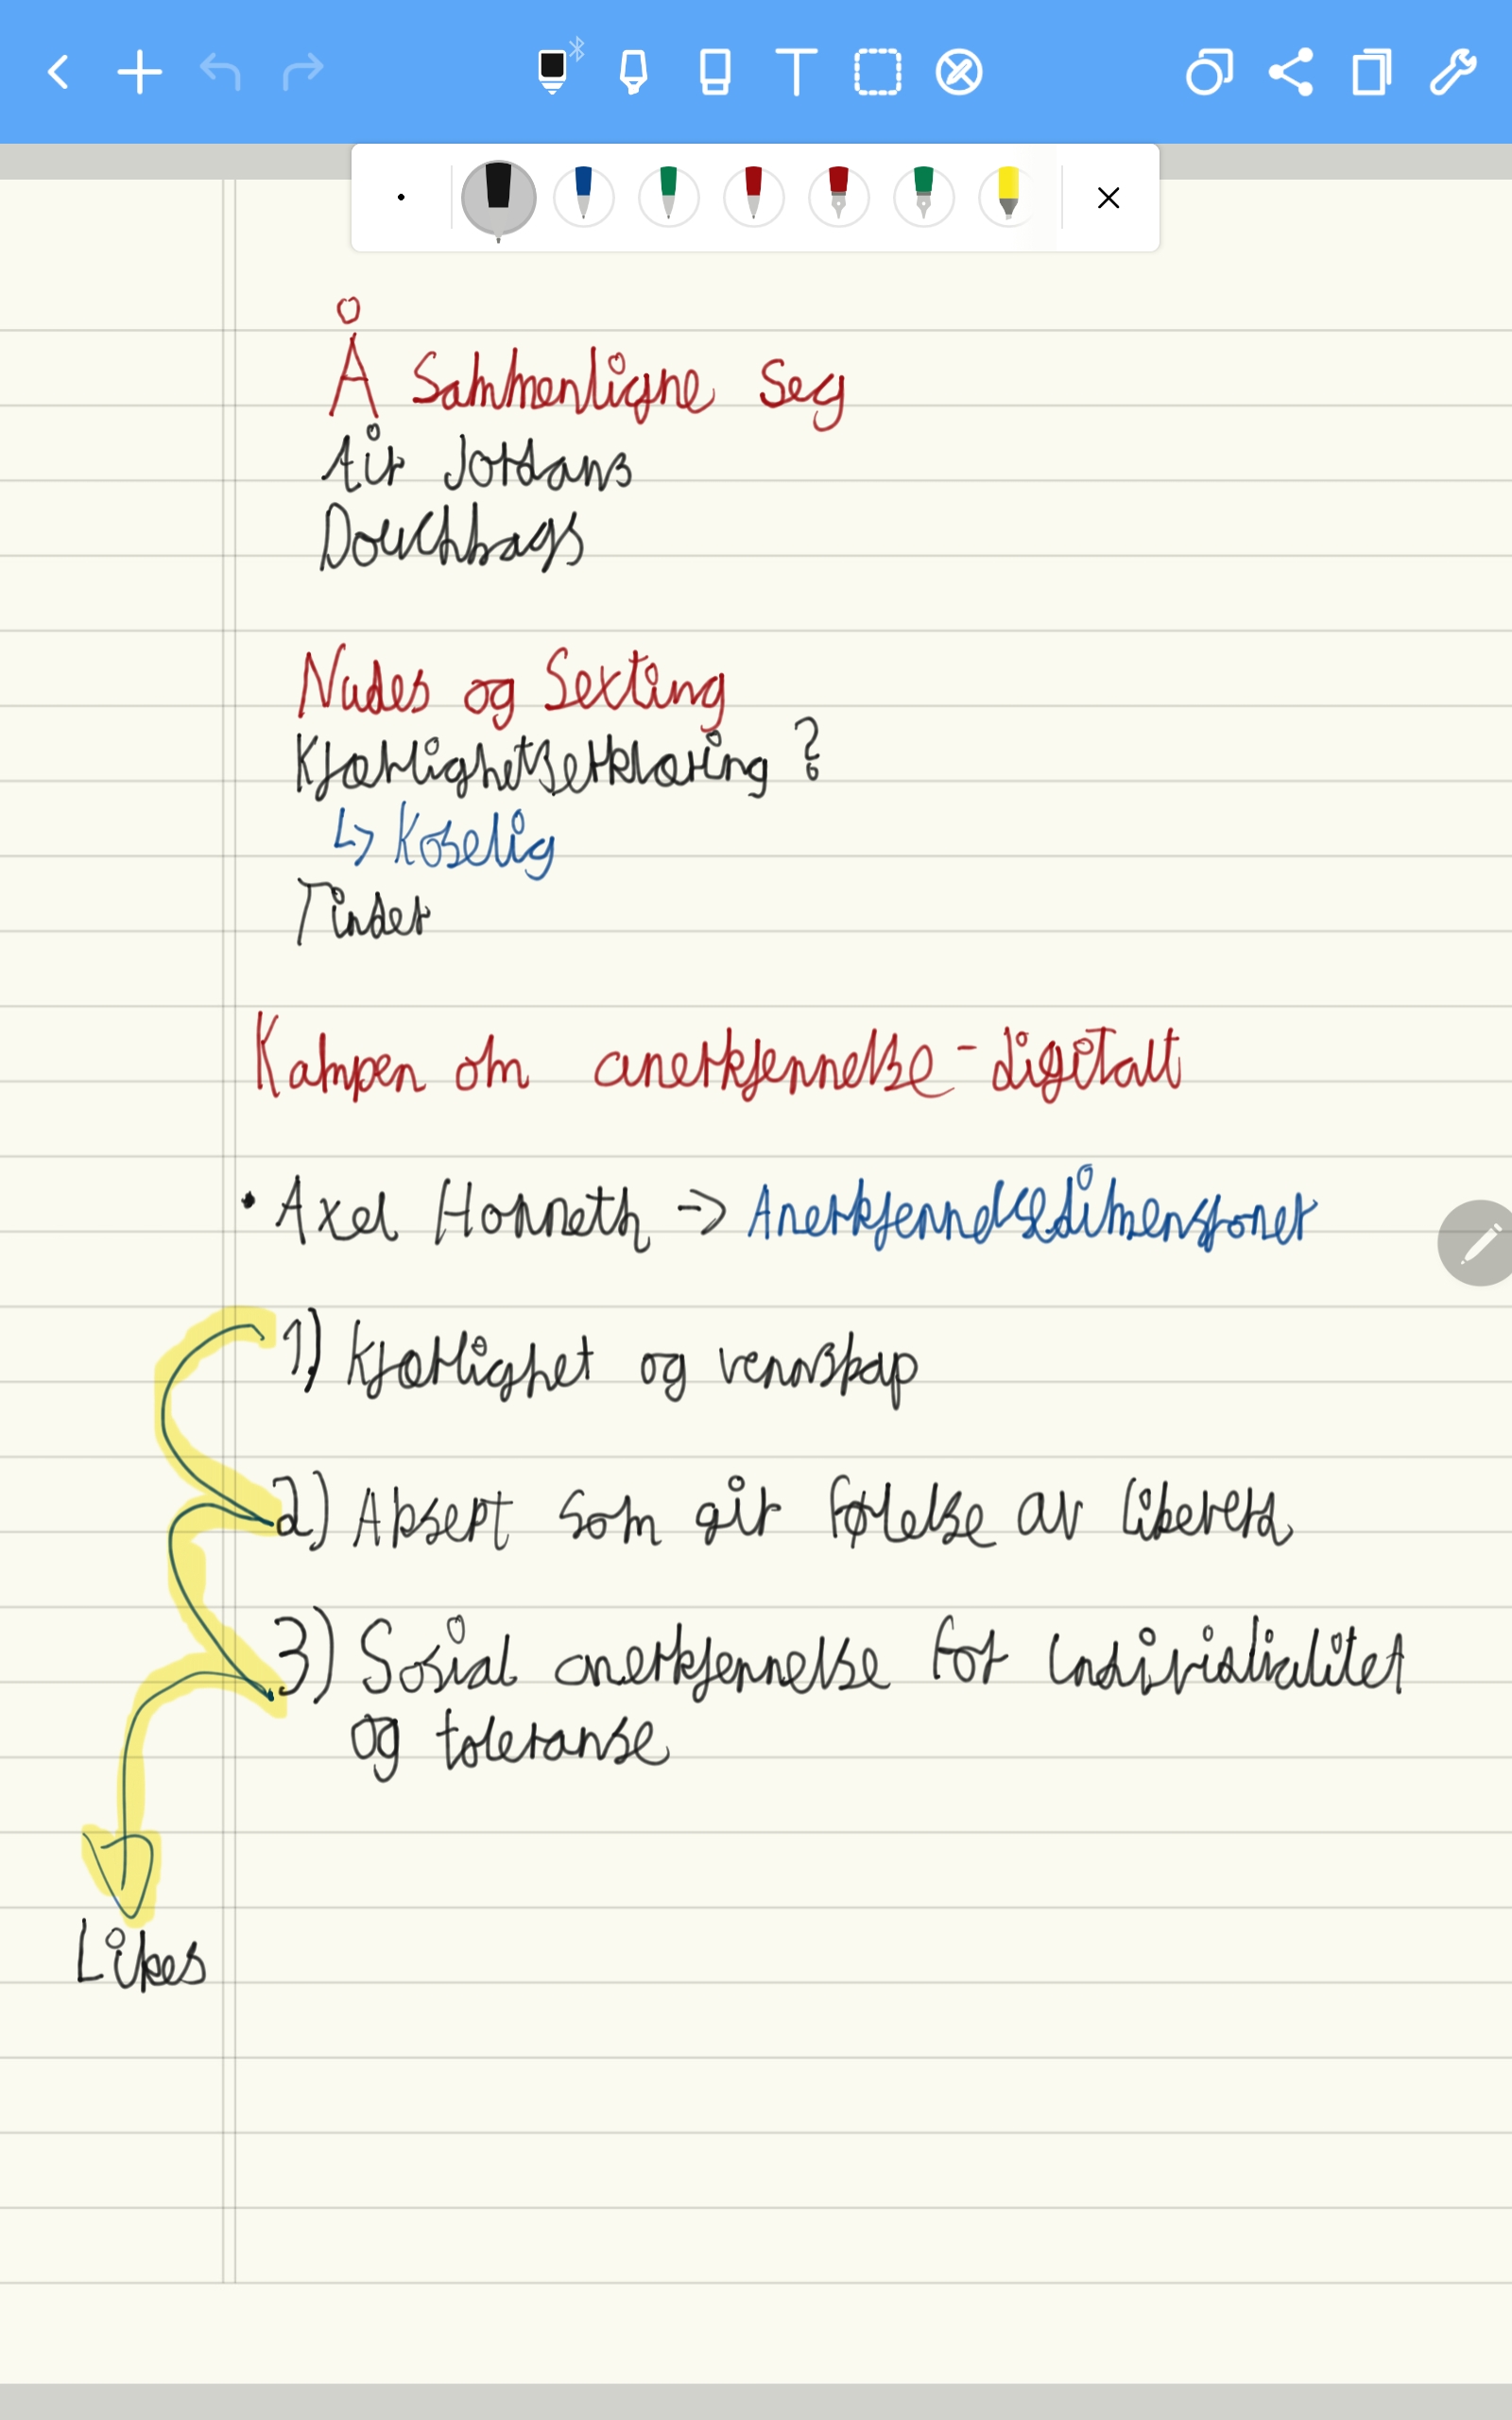 Å Sammenligne Seg
Air Jordans
Douchbags
Nudes og Sexting
Kjærlighetserklæring ?
↳ Koselig
Tinder
Kampen om anerkjennelse - digitalt
• Axel Honneth -> Anerkjennelsedimensjoner
1) Kjærlighet og vennskap
2) Aksept som gir følelse av likeverd
3) Sosial anerkjennelse for individualitet
og toleranse
Likes